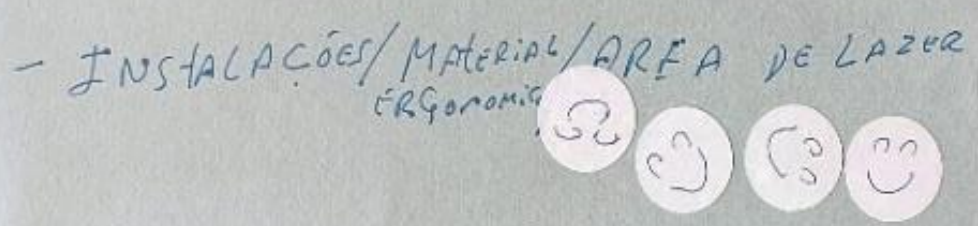 - INSTALAÇÕES/MATERIAL/AREA DE LAZER
ERGONOMIA